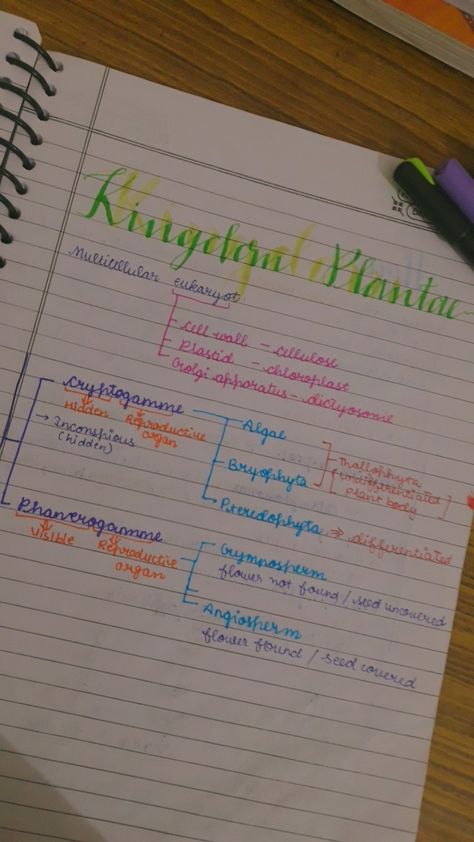 Kingdom Plantae
Multicellular eukaryot
Cell wall - cellulose
Plastid - chloroplase
Golgi apparatus - dictyosome
Cryptogamme
Hidden Reproductive organ
→ Inconspious (hidden)
Algae
Bryophyta
Thallophyta
undifferentiated
Plant body
Pteredophyta → differentiated
Phanerogamme
Visible Reproductive organ
Gymnosperm
flower not found / seed uncovered
Angiosperm
flower found / seed covered